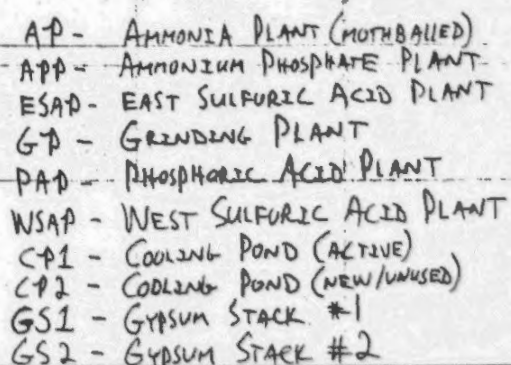 AP - AMMONIA PLANT (MOTHBALLED)
APP - AMMONIUM PHOSPHATE PLANT
ESAP - EAST SULFURIC ACID PLANT
GP - GRINDING PLANT
PAP - PHOSPHORIC ACID PLANT
WSAP - WEST SULFURIC ACID PLANT
CP1 - COOLING POND (ACTIVE)
CP2 - COOLING POND (NEW/UNUSED)
GS1 - GYPSUM STACK #1
GS2 - GYPSUM STACK #2